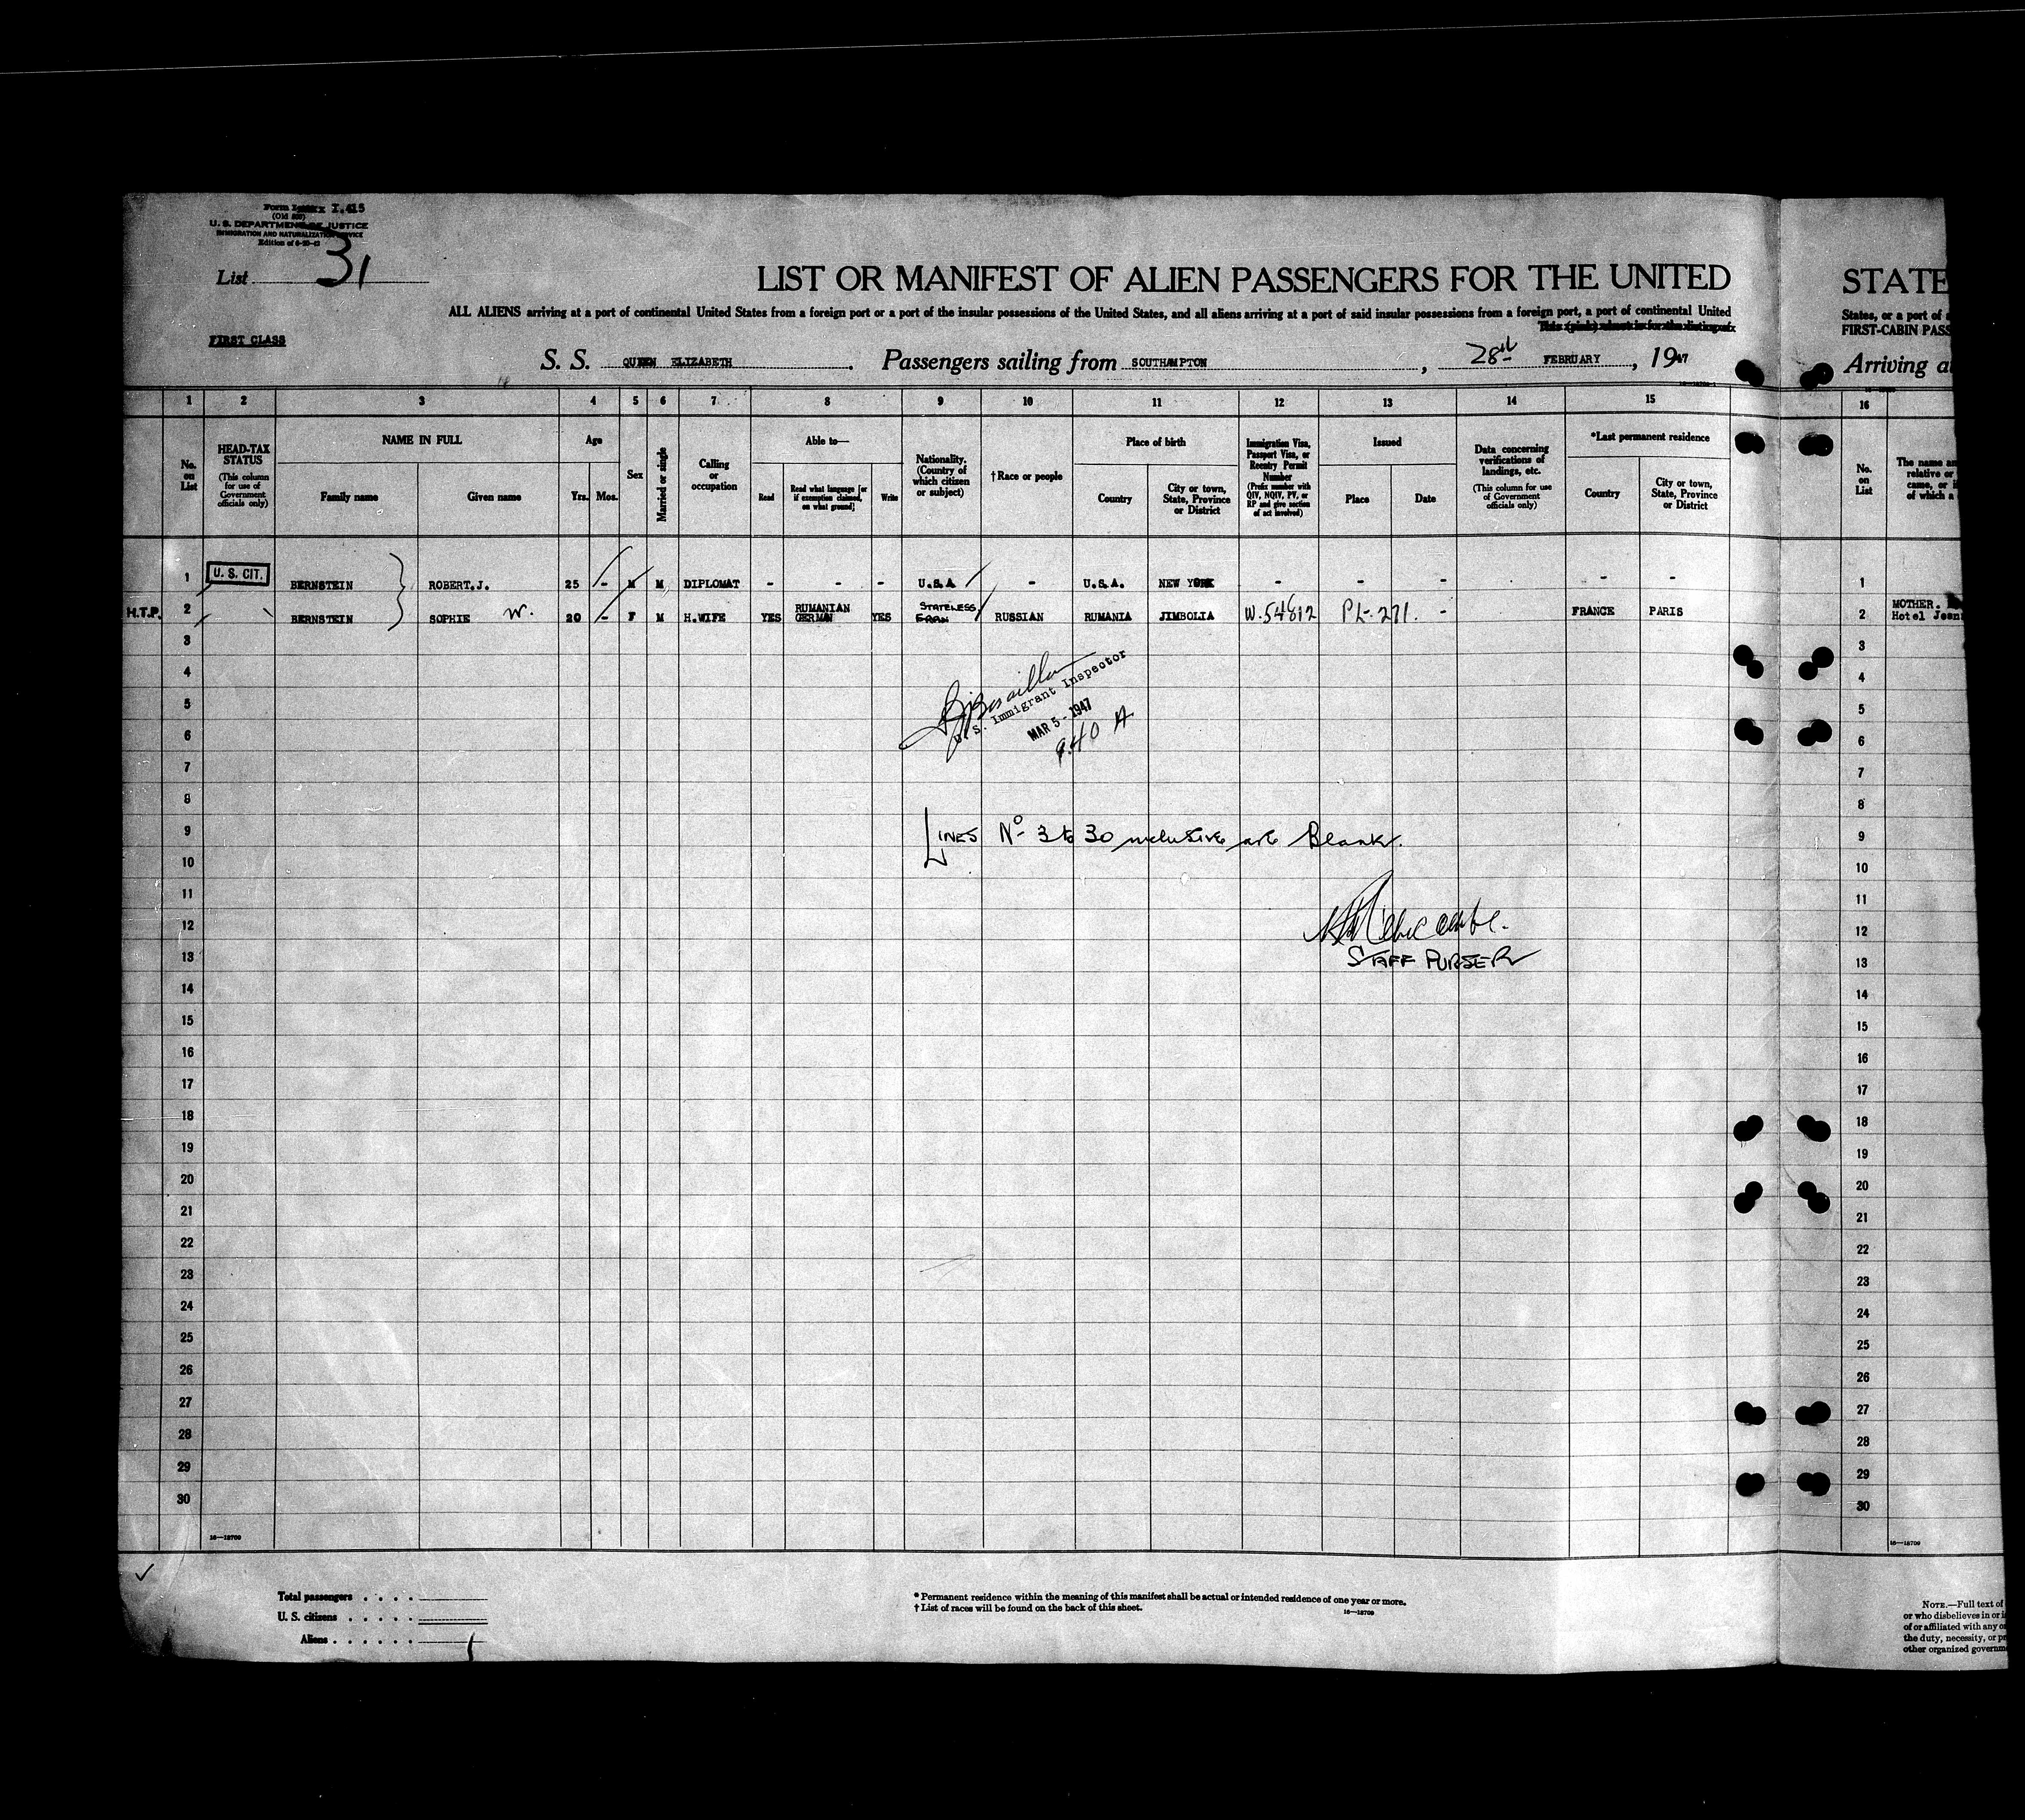 Form I.415
(Old 500)
U. S. DEPARTMENT OF JUSTICE
IMMIGRATION AND NATURALIZATION SERVICE
List 31
LIST OR MANIFEST OF ALIEN PASSENGERS FOR THE UNITED
STATE
ALL ALIENS arriving at a port of continental United States from a foreign port or a port of the insular possessions of the United States, and all aliens arriving at a port of said insular possessions from a foreign port, a port of continental United
States, or a port of
FIRST-CABIN PASS
FIRST CLASS
S. S. QUEEN ELIZABETH. Passengers sailing from SOUTHAMPTON, 28th FEBRUARY, 1947
Arriving a
1 2 3 4 5 6 7 8 9 10 11 12 13 14 15 16
No. on List
HEAD-TAX STATUS (This column for use of Government officials only)
NAME IN FULL
Family name
Given name
Age
Yrs. Mos.
Sex
Married or single
Calling or occupation
Able to—
Read
Read what language [or if exemption claimed, on what ground]
Write
Nationality. (Country of which citizen or subject)
†Race or people
Place of birth
Country
City or town, State, Province or District
Immigration Visa, Passport Visa, or Reentry Permit Number (Prefix number with QIV, NQIV, PV, or RP and give section of act involved)
Issued
Place
Date
Data concerning verifications of landings, etc. (This column for use of Government officials only)
*Last permanent residence
Country
City or town, State, Province or District
No. on List
The name an
relative or
came, or i
of which a
1 U. S. CIT. BERNSTEIN ROBERT.J. 25 - M M DIPLOMAT - - - U.S.A - U.S.A. NEW YORK - - - - - 1
H.T.P. 2 BERNSTEIN SOPHIE W. 20 - F M H.WIFE YES RUMANIAN GERMAN YES STATELESS RUSSIAN RUMANIA JIMBOLIA W.54612 PL-271. - FRANCE PARIS 2 MOTHER.
Hotel Jean
3 3
4 4
5 5
6 6
7 7
8 8
9 9
10 10
11 11
12 12
13 13
14 14
15 15
16 16
17 17
18 18
19 19
20 20
21 21
22 22
23 23
24 24
25 25
26 26
27 27
28 28
29 29
30 30
U. S. Immigrant Inspector
MAR 5 - 1947
9.40 A
LINES No- 3 to 30 inclusive are Blank.
STAFF PURSER
16—18709
16—18709
Total passengers . . . .
U. S. citizens . . . . .
Aliens . . . . . . 1
* Permanent residence within the meaning of this manifest shall be actual or intended residence of one year or more.
† List of races will be found on the back of this sheet.
16—18709
NOTE.—Full text of
or who disbelieves in or i
of or affiliated with any o
the duty, necessity, or pr
other organized governm